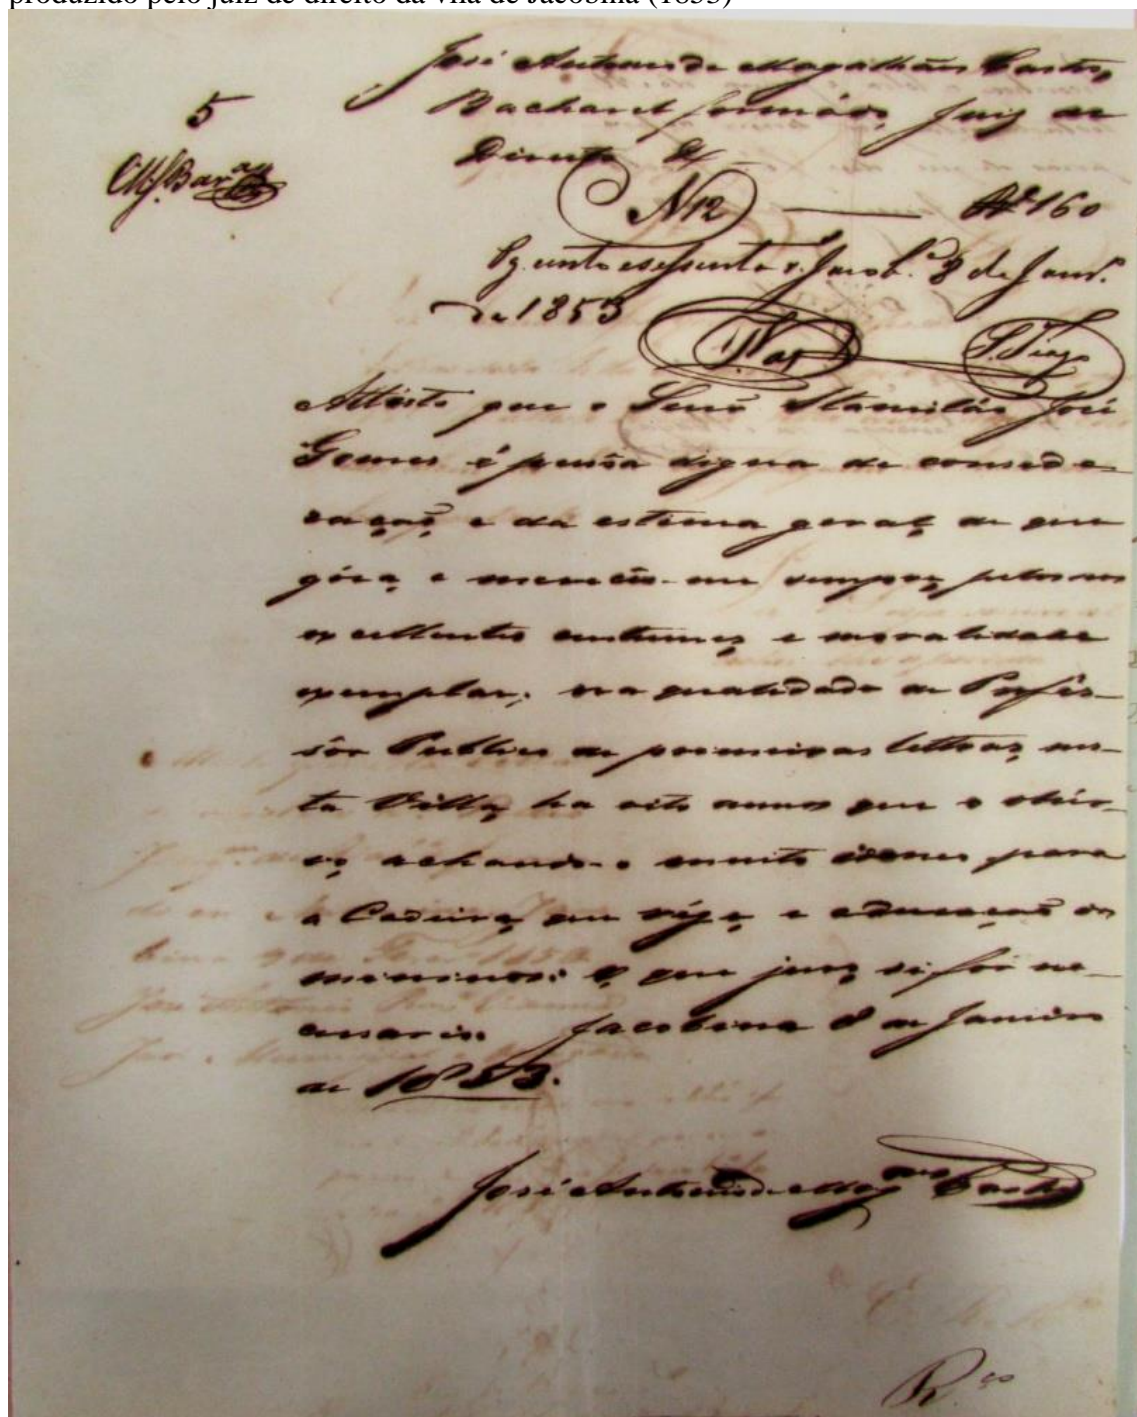 produzido pelo juiz de direito da vila de Jacobina (1853)
José Antonio de Magalhães Castro,
5
Bacharel formádo, Juiz de
Direito &
N12 160
Pg. cento esessenta r.s Jacob.ª 8 de Janr.º
de 1853
Vaz S.Tiago
Attésto que o Senr Stanisláo José
Gomes é pessôa digna de conside-
raçaõ e da estima geral de que
góza e merecêo-me sempre pelos seus
excellentes costumes e moralidade
exemplar; na qualidade de Proffes-
sôr Publico de primeiras lettras nes-
ta Villa, ha oito annos que o obsér-
vo, achando-o muito idoneo para
a Cadeira que rége e educaçaõ de
meninos: o que juro si fôr ne-
cessario. Jacobina 8 de Janeiro
de 1853.
José Antonio de Mag.es Castro
R.co